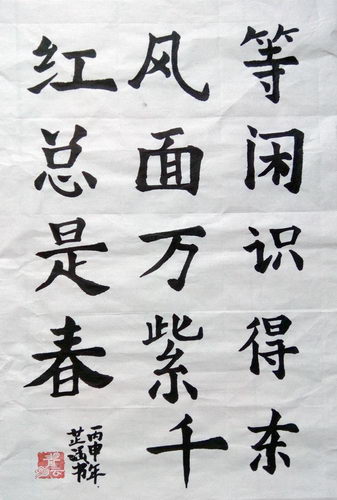 等闲识得东
风面万紫千
红总是春
丙申年
芷涵书